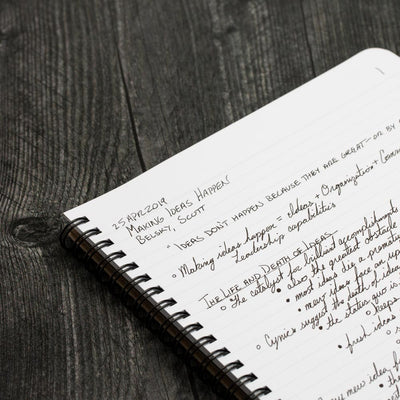 25 APR 2019
MAKING IDEAS HAPPEN
BELSKY, SCOTT
"IDEAS DON'T HAPPEN BECAUSE THEY ARE GREAT — OR BY
° Making ideas happen = Ideas + Organization + Comm
Leadership capabilities
THE LIFE AND DEATH OF IDEAS
° The catalyst for brilliant accomplishments
• also the greatest obstacle
• most ideas die a premature
• many ideas face an up
° Cynics suggest the death of idea
• the status quo is
° keeps
• fresh ideas
new idea, f
the